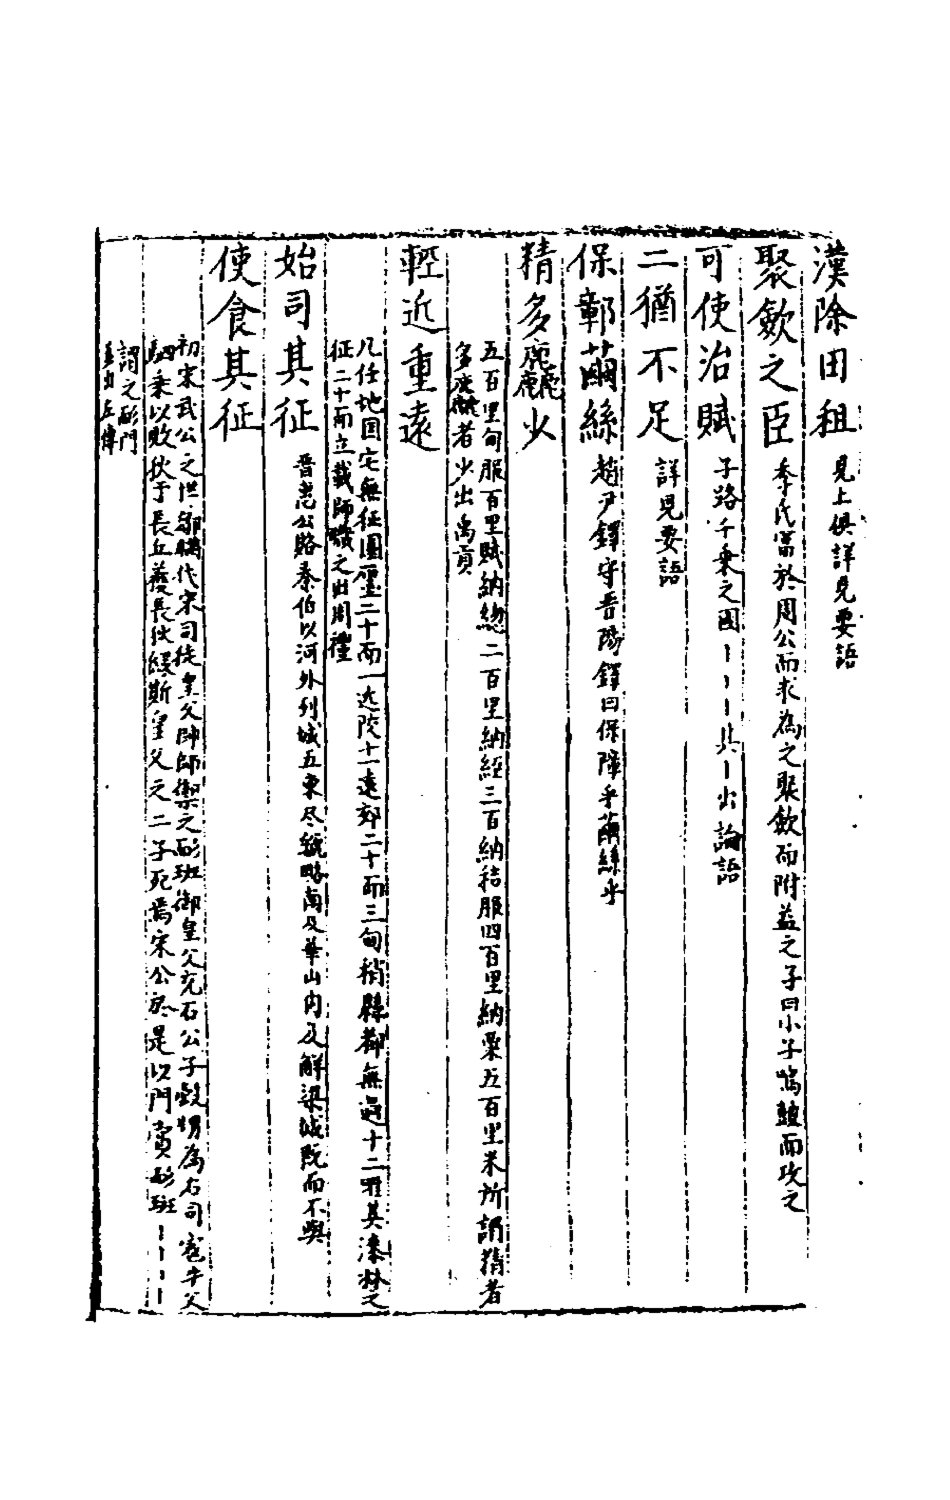 漢除田租 見上俱詳見要語
聚歛之臣 季氏富於周公而求為之聚歛而附益之子曰小子鳴鼓而攻之
可使治賦 子路千乗之國丨丨丨其丨出論語
二猶不足 詳見要語
保鄣繭絲 趙尹鐸守晋陽鐸曰保障乎繭絲乎
精多麄麤少
五百里甸服百里賦納總二百里納銍三百納秸服四百里納粟五百里米所謂精者
多麄麤者少出禹貢
輕近重遠
凡任地国宅無征園廛二十而一近郊十一遠郊二十而三甸稍縣都無過十二唯其漆林之
征二十而五載師職之出周禮
始司其征 晋惠公賂秦伯以河外列城五東尽虢略南及華山内及解梁城既而不與
使食其征
初宋武公之世鄋瞞伐宋司徒皇父帥師禦之耏班御皇父充石公子穀甥為右司寇牛父
駟乗以敗狄于長丘獲長狄緣斯皇父之二子死焉宋公於是以門賞耏班丨丨丨丨
謂之耏門
並出左傳